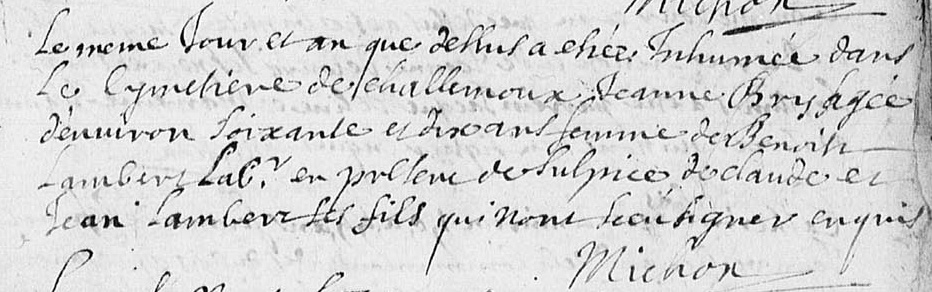 Michon
Le meme Jour et an que dessus a estée Inhumée dans
Le Cymetiere de challemoux Jeanne Brys agée
d'environ soixante et dix ans femme de Benoist
Lambert Labr. en presence de sulpice de claude et
Jean Lambert ses fils qui n'ont sceu signer enquis
Michon